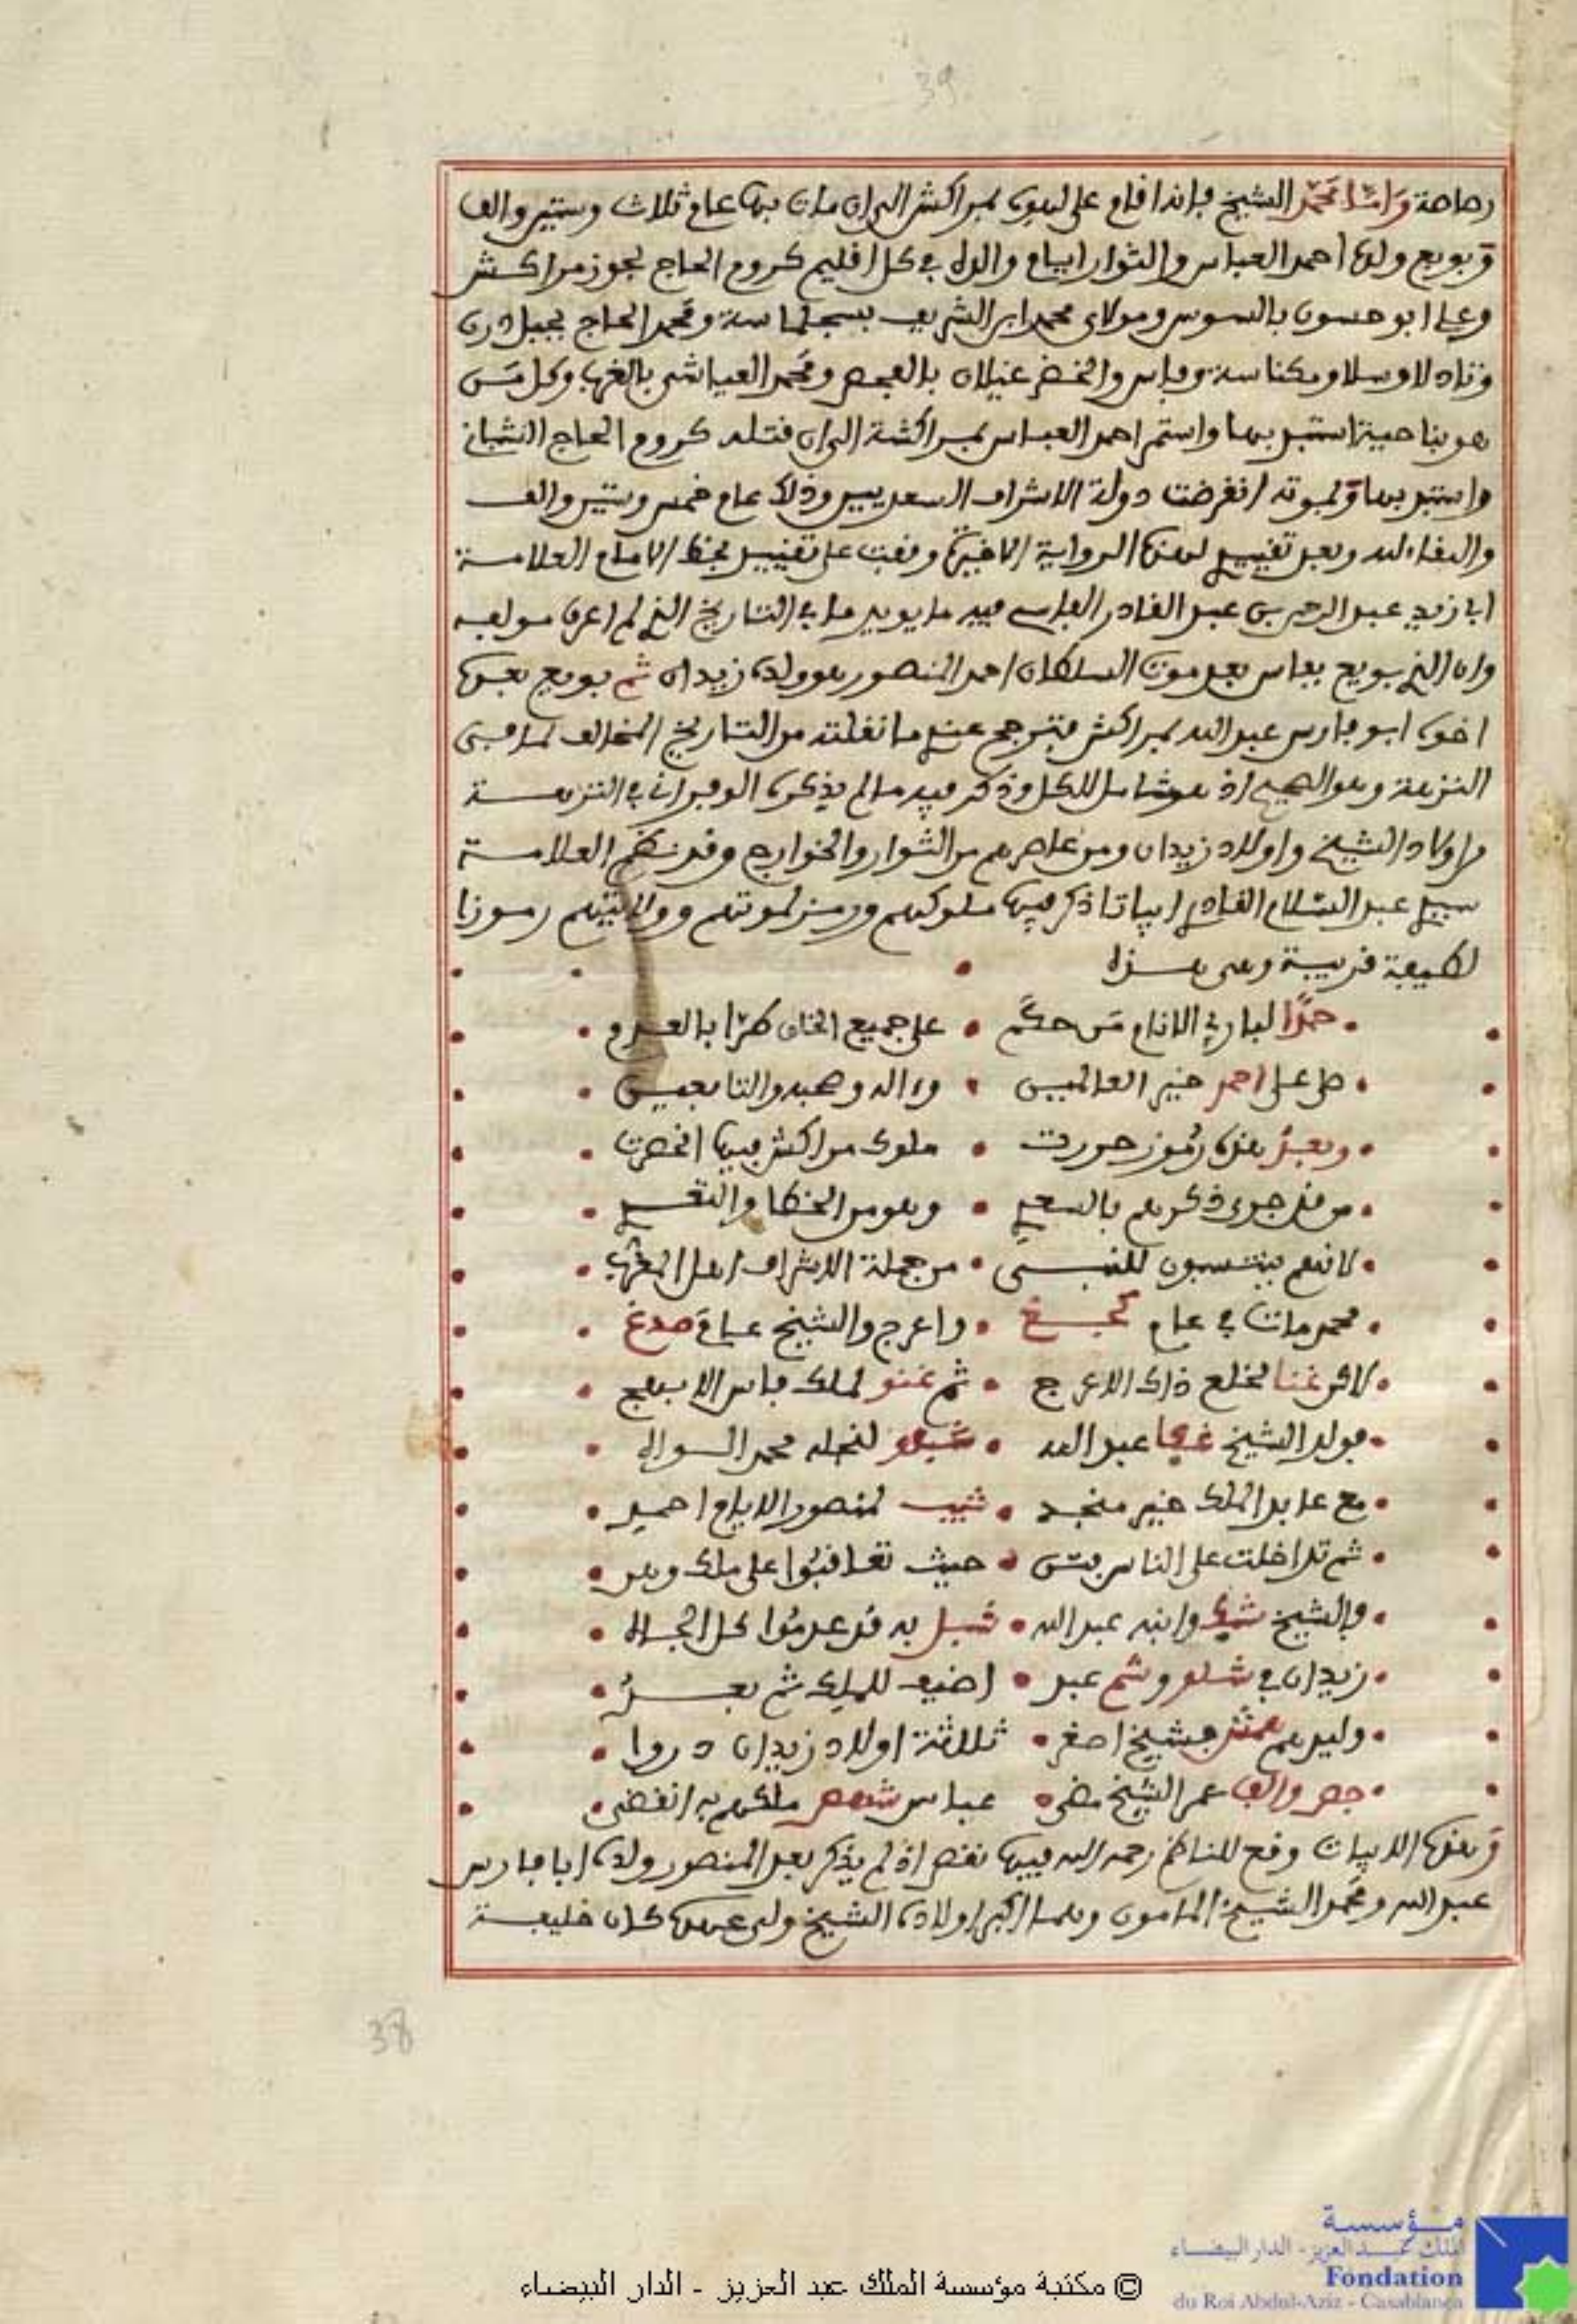 39
رصاصة وامّا محمّد الشيخ فإنه اقام على لهوه بمراكش الى ان مات بها عام ثلاث وستين والف
وبويع ولده احمد العباس والثوار ايام والده في كل اقليم كروم الحاج بحوز مراكش
وعلي ابو حسون بالسوس ومولاي محمد ابن الشريف بسجلماسة ومحمد الحاج بجبل درن
وتادلا وسلا ومكناسة وفاس والخضر غيلان بالفحص ومحمد العياشي بالغرب وكل من
هو بناحية استبد بها واستمر احمد العباس بمراكشة الى ان قتله كروم الحاج الشباني
واستبد بها وبموته انقرضت دولة الاشراف السعديين وذلك عام خمس وستين والف
والبقاء لله وبعد تقييدي لهذه الرواية الاخيرة وقفت على تقييد بخط الامام العلامة
ابي زيد عبد الرحمن بن عبد القادر الفاسي فيه ما يويد ما في التاريخ الذي لم اعرف مولفه
وان الذي بويع بفاس بعد موت السلطان احمد المنصور هو ولده زيدان ثم بويع بعده
اخوه ابو فارس عبد الله بمراكش فترجح عندي ما نقلته من التاريخ المخالف لما في
النزهة وهو الصحيح اذ هو شامل للكل وذكر فيه ما لم يذكره الوفراني في النزهة
من اولاد الشيخ واولاد زيدان ومن عاصرهم من الثوار والخوارج وقد نظم العلامة
سيدي عبد السلام القادري ابياتا ذكر فيها ملوكهم ورمز لموتهم وولايتهم رموزا
لطيفة قريبة وهي هذه
حمدًا لباري الانام من حكم • على جميع الخلق طرّا بالعدم
صل على احمد خير العالمين • وءاله وصحبه والتابعين
وبعد هذه رموز حررت • ملوك مراكش فيها انحصرت
من قد جرى ذكرهم بالسعدي • وهو من الخطا والتعدي
لانهم ينتسبون للنبي • من جملة الاشراف اهل المغرب
محمد مات في عام • واعرج والشيخ عام
لاكن لخلع ذاك الاعرج • ثم لملك فاس الابهج
فولد الشيخ عبد الله • لنجله محمد
مع عابد الملك خير منجد • لمنصور الايام احمد
ثم تداخلت على الناس فتن • حيث تعاقبوا على ملك وهن
فالشيخ وابنه عبد الله • قيل به قد عدموا كل الجاه
زيدان في وثم عبد • اضيف للملك ثم بعد
وليدهم فشيخ اصغر • ثلاثة اولاد زيدان دروا
والف عمر الشيخ مضى • عباس ملكهم به انقضى
وهذه الابيات وقع للناظم رحمه الله فيها نقص اذ لم يذكر بعد المنصور ولده ابا فارس
عبد الله ومحمد الشيخ المامون وهما اكبر اولاده الشيخ ولي عهده كان خليفة
38
© مكتبة مؤسسة الملك عبد العزيز - الدار البيضاء
مؤسسة
الملك عبد العزيز - الدار البيضاء
Fondation
du Roi Abdul-Aziz - Casablanca